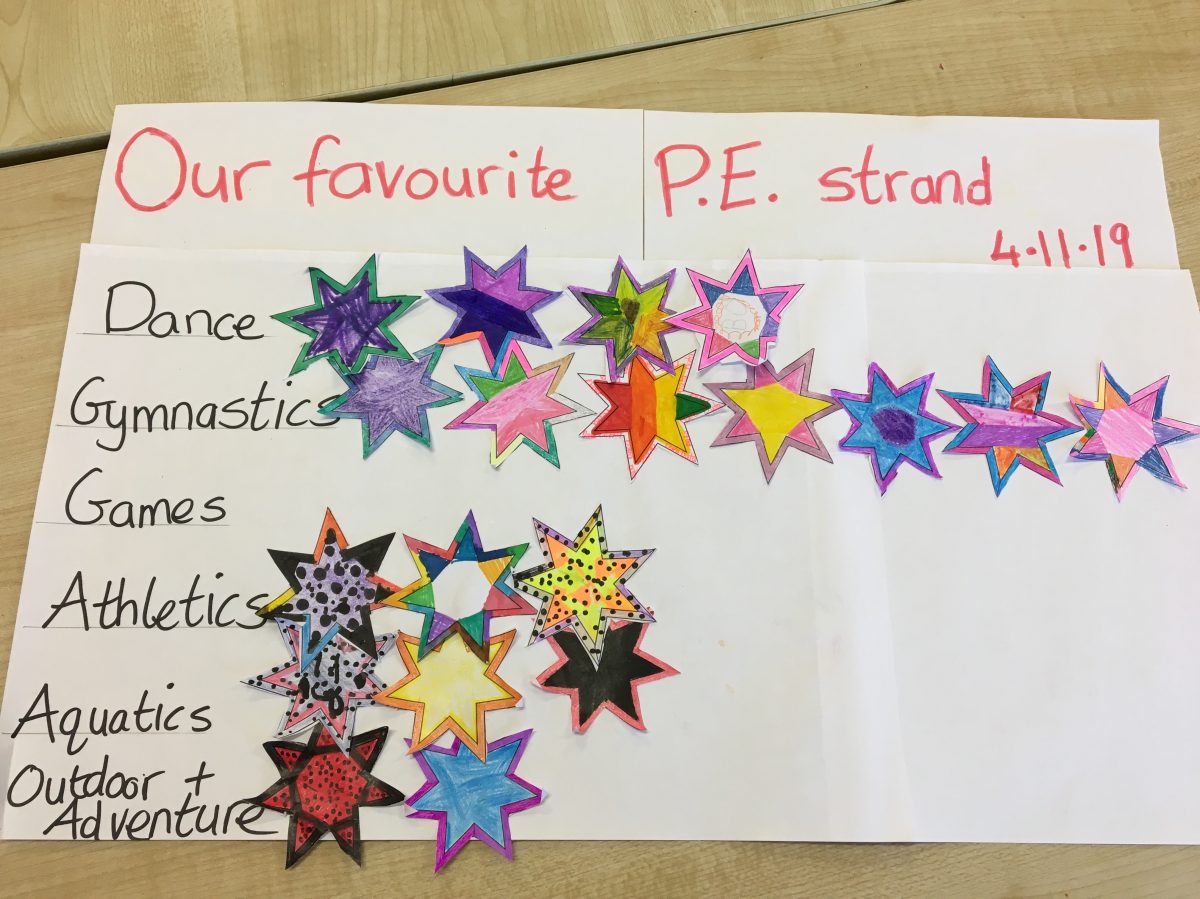 Our favourite P.E. strand
4.11.19
Dance
Gymnastics
Games
Athletics
Aquatics
Outdoor +
Adventure